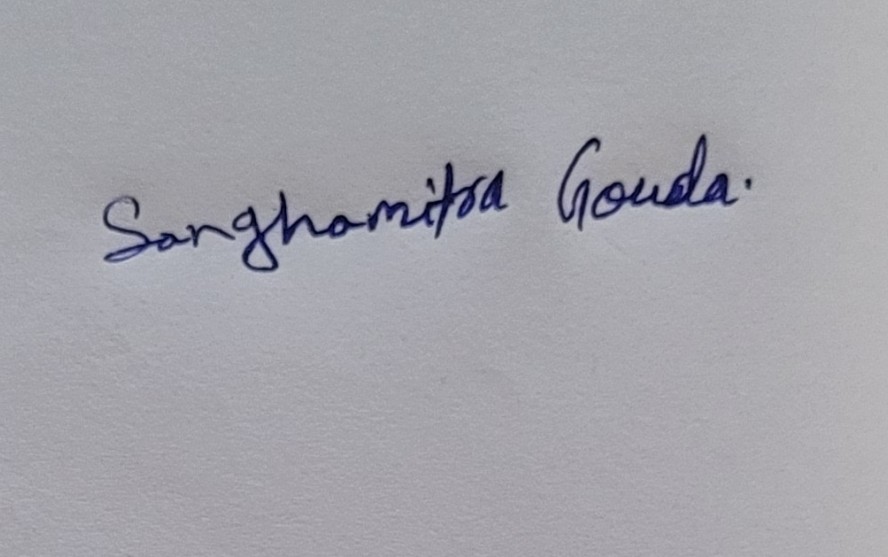 Sanghamitra Gouda.